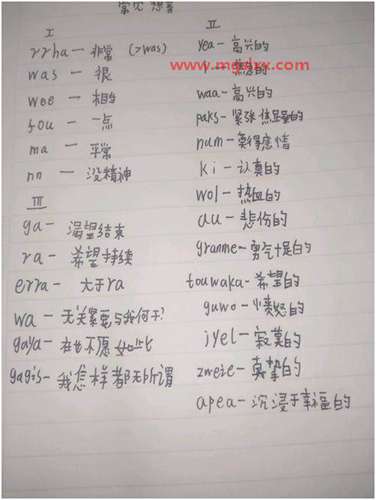 常见 想音
I
rrha — 非常 (>was)
was — 很
wee — 相当
fou — 一点
ma — 平常
nn — 没精神
III
ga — 渴望结束
ra — 希望持续
erra — 大于ra
wa — 无关紧要与我何干?
gaya — 在也不愿如此
gagis — 我怎样都无所谓
II
yea — 高兴的
www.mgdyx.com
waa — 高兴的
paks — 紧张焦虑的
num — 莫得感情
ki — 认真的
wol — 热血的
au — 悲伤的
granme — 勇气十足的
touwaka — 希望的
guwo — 愤怒的
jyel — 寂寞的
zweie — 真挚的
apea — 沉浸于幸福的